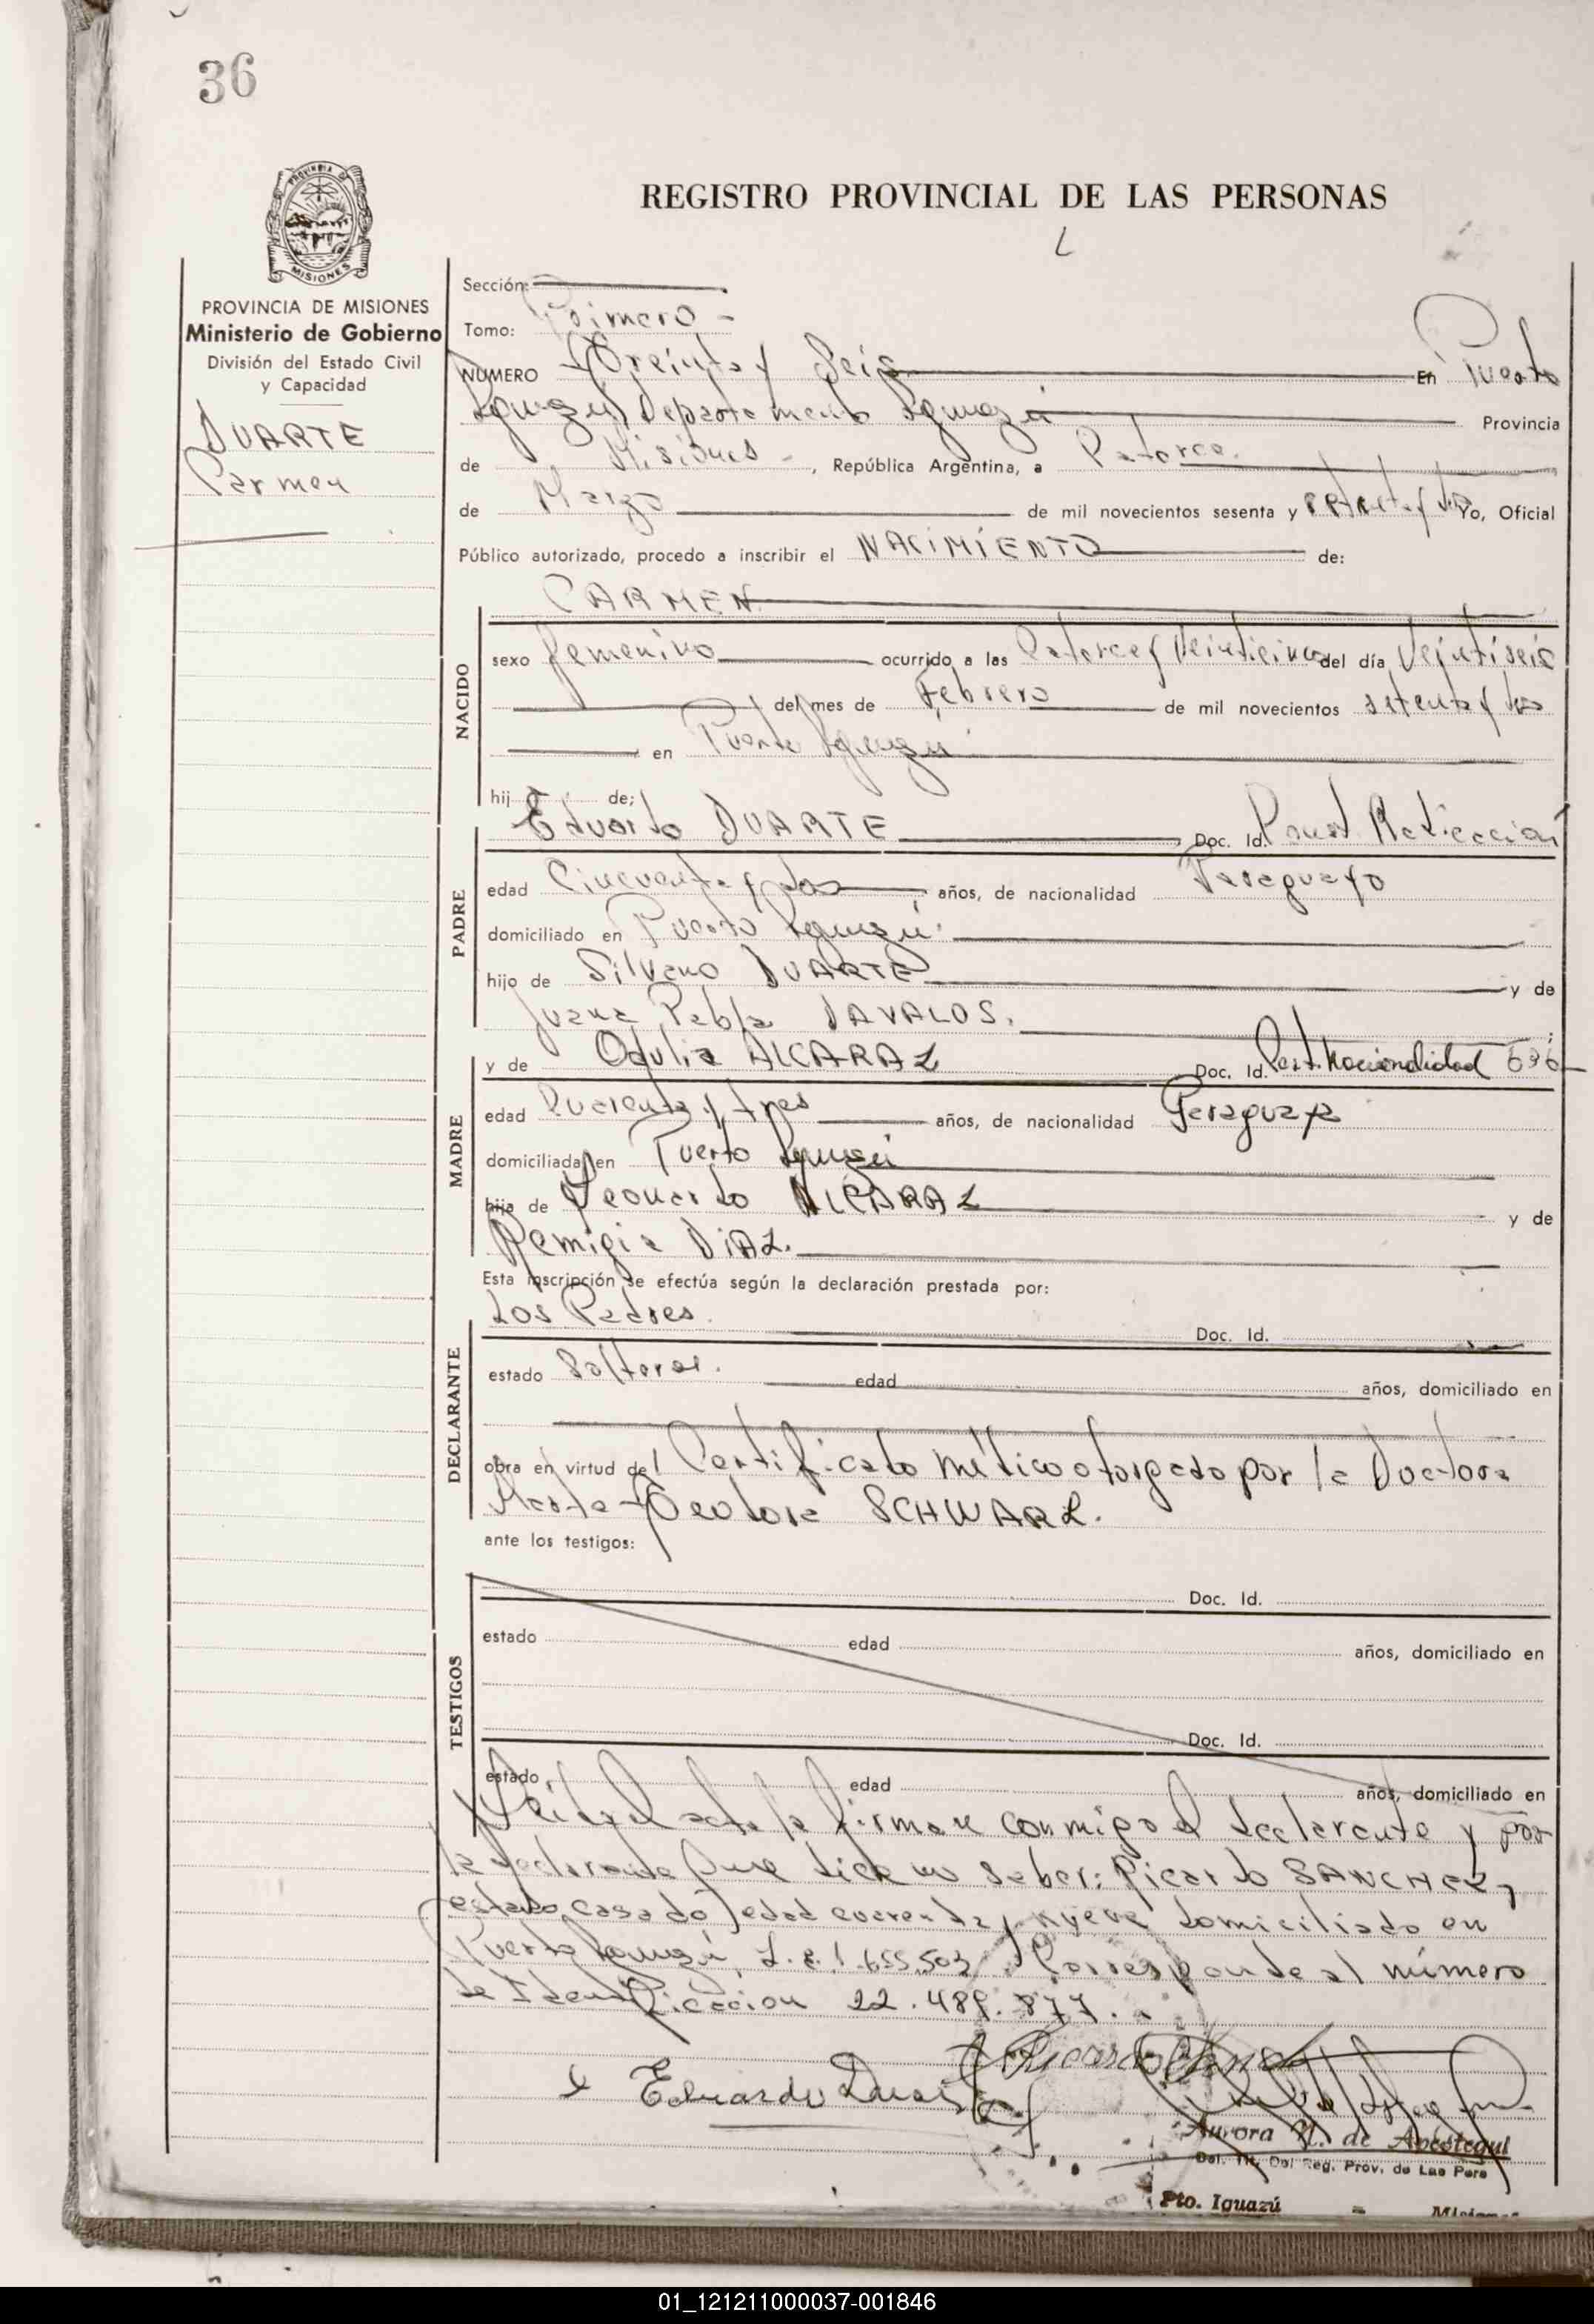 36
PROVINCIA DE
MISIONES
REGISTRO PROVINCIAL DE LAS PERSONAS
PROVINCIA DE MISIONES
Ministerio de Gobierno
División del Estado Civil
y Capacidad
DUARTE
Carmen
Sección:
Tomo: Primero -
NUMERO Treinta y Seis En Puerto
Iguazú Departamento Iguazú Provincia
de Misiones -, República Argentina, a Catorce.
de Marzo de mil novecientos sesenta y setenta y tres Yo, Oficial
Público autorizado, procedo a inscribir el NACIMIENTO de:
NACIDO
CARMEN
sexo femenino ocurrido a las Catorce y Veinticinco del día Veintiseis
del mes de Febrero de mil novecientos setenta y tres
en Puerto Iguazú
hij de;
PADRE
Eduardo DUARTE Doc. Id.
edad Cincuenta y dos años, de nacionalidad Paraguayo
domiciliado en Puerto Iguazú.
hijo de Silvano DUARTE y de
Juana Pabla DAVALOS.
MADRE
y de Odulia ALCARAZ Doc. Id. Cert. Nacionalidad 696
edad Cuarenta y tres años, de nacionalidad Paraguaya
domiciliada en Puerto Iguazú
hija de Leonardo ALCARAZ y de
Remigia DIAZ.
Esta inscripción se efectúa según la declaración prestada por:
DECLARANTE
Los Padres. Doc. Id.
estado Solteros. edad años, domiciliado en
obra en virtud del Certificado médico otorgado por la Doctora
Marta Teodora SCHWARZ.
ante los testigos:
TESTIGOS
Doc. Id.
estado edad años, domiciliado en
Doc. Id.
estado edad años, domiciliado en
Leida el acta la firman conmigo el declarante y por
la declarante que dice no saber: Ricardo SANCHEZ,
estado casado, edad cuarenta y nueve domiciliado en
Puerto Iguazú, L.E. 1.655.503. Corresponde al número
de Identificación 22.489.877.
Eduardo Duarte
Aurora N. de Apestegui
Del. Tit. Del Reg. Prov. de Las Pers
Pto. Iguazú - Misiones
01_121211000037-001846